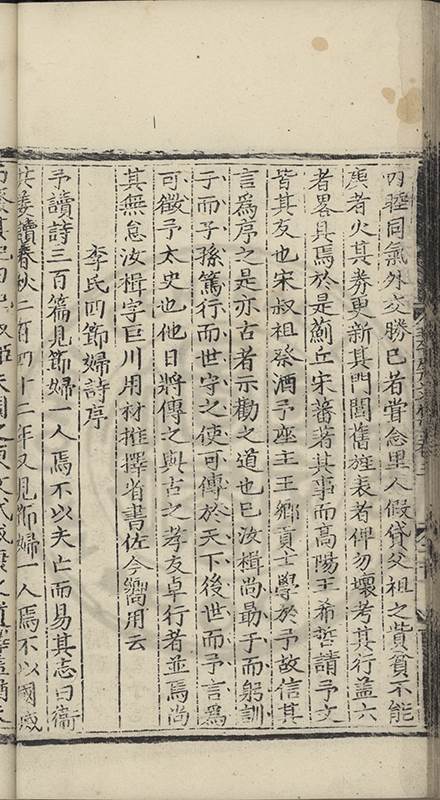 內睦同氣外交勝己者嘗念里人假貸父祖之貲貧不能
庚者火其券更新其門閭舊旌表者俾勿壞考其行蓋六
者畧具焉於是薊丘宋蕃著其事而高陽王希哲請予文
皆其友也宋叔祖祭酒予座主王鄉貢士學於予故信其
言為序之是亦古者示勸之道也巳汝楫尚勗于而躬訓
于而子孫篤行而世守之使可傳於天下後世而予言為
可徵予太史也他日將傳之與古之孝友卓行者並焉尚
其無怠汝楫字巨川用材推擇省書佐今嚮用云
李氏四節婦詩序
予讀詩三百篇見節婦一人焉不以夫亡而易其志曰衞
共姜讀春秋二百四十二年又見節婦一人焉不以國烕